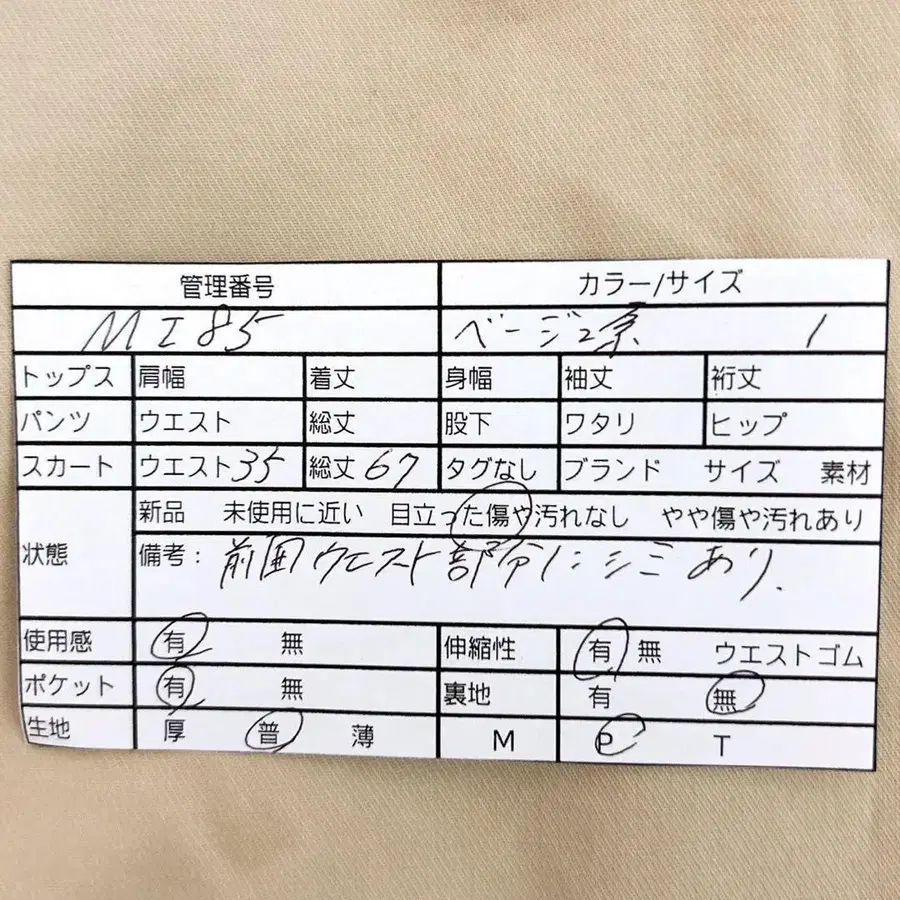 管理番号 カラー/サイズ
MI85 ベージュ系 1
トップス 肩幅 着丈 身幅 袖丈 裄丈
パンツ ウエスト 総丈 股下 ワタリ ヒップ
スカート ウエスト 35 総丈 67 タグなし ブランド サイズ 素材
状態 新品 未使用に近い 目立った傷や汚れなし やや傷や汚れあり
備考: 前面ウエスト部分にシミあり.
使用感 有 無 伸縮性 有 無 ウエストゴム
ポケット 有 無 裏地 有 無
生地 厚 普 薄 M P T